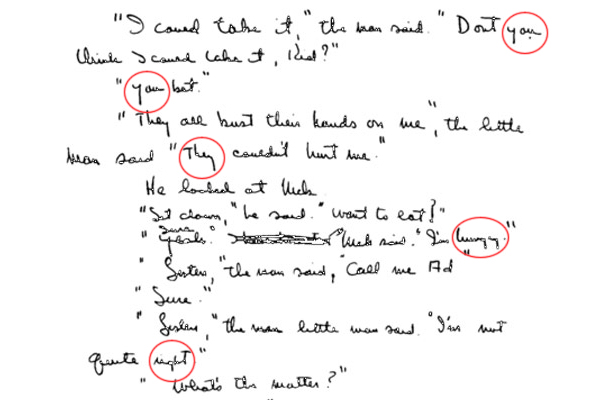 "I could take it," the man said. "Dont you
think I could take it, Kid?"
"You bet."
"They all bust their hands on me", the little
man said "They couldn't hurt me."
He looked at Nick
"Sit down," he said. "Want to eat?"
sure
"Nick said. "I'm hungry."
"Listen, "the man said, "Call me Ad"
"Sure."
"Listen, "the man little man said. "I'm not
quite right"
"What's the matter?"